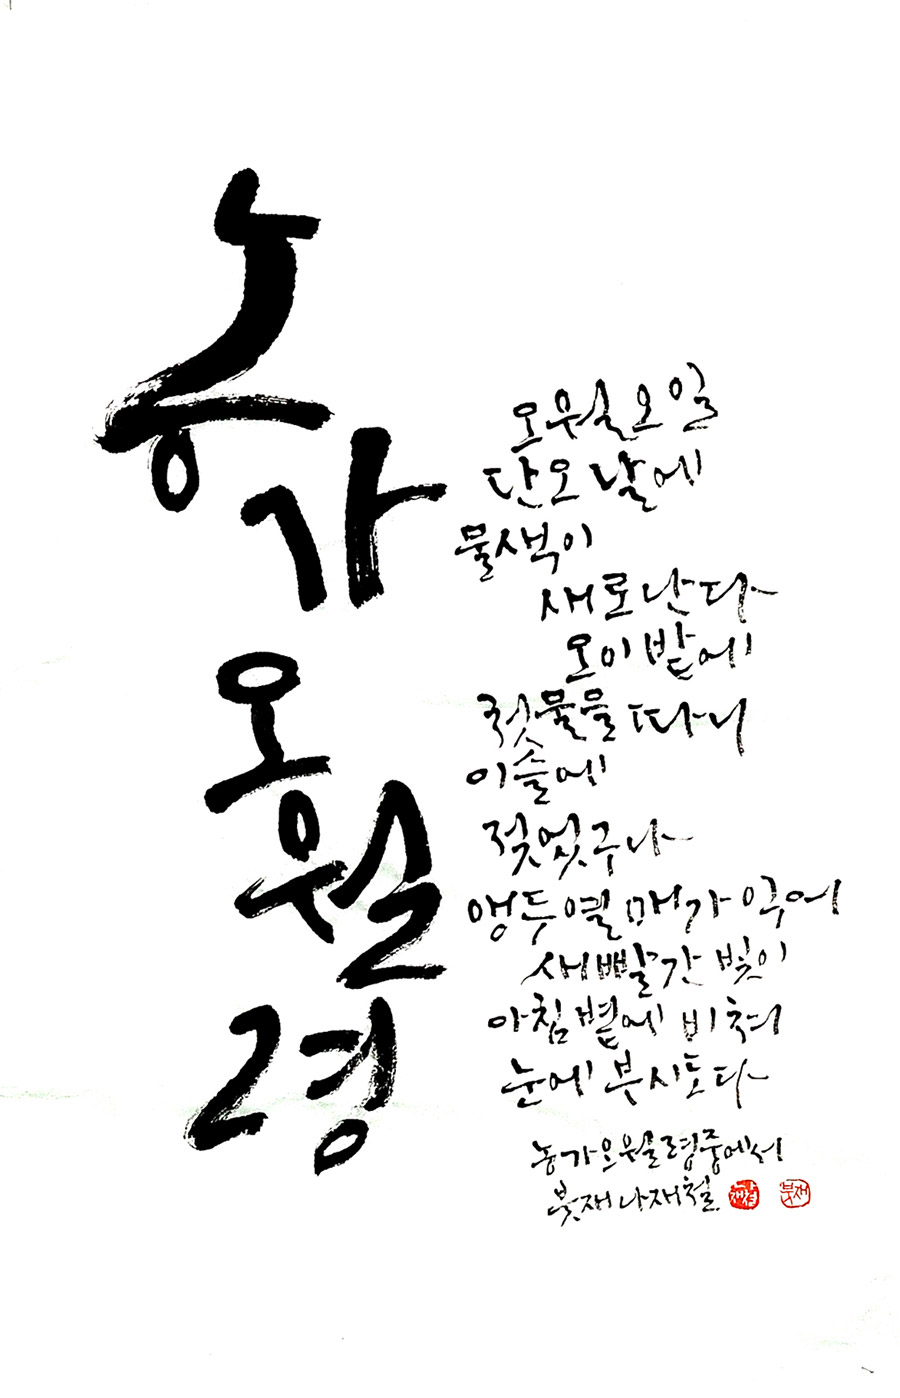 농가
오월
령
오월오일
단오날에
물색이
새로난다
오이밭에
첫물을 따니
이슬에
젖었구나
앵두열매가 익어
새빨간 빛이
아침볕에 비쳐
눈에 부시도다
농가오월령중에서
붓재 나재철
붓재